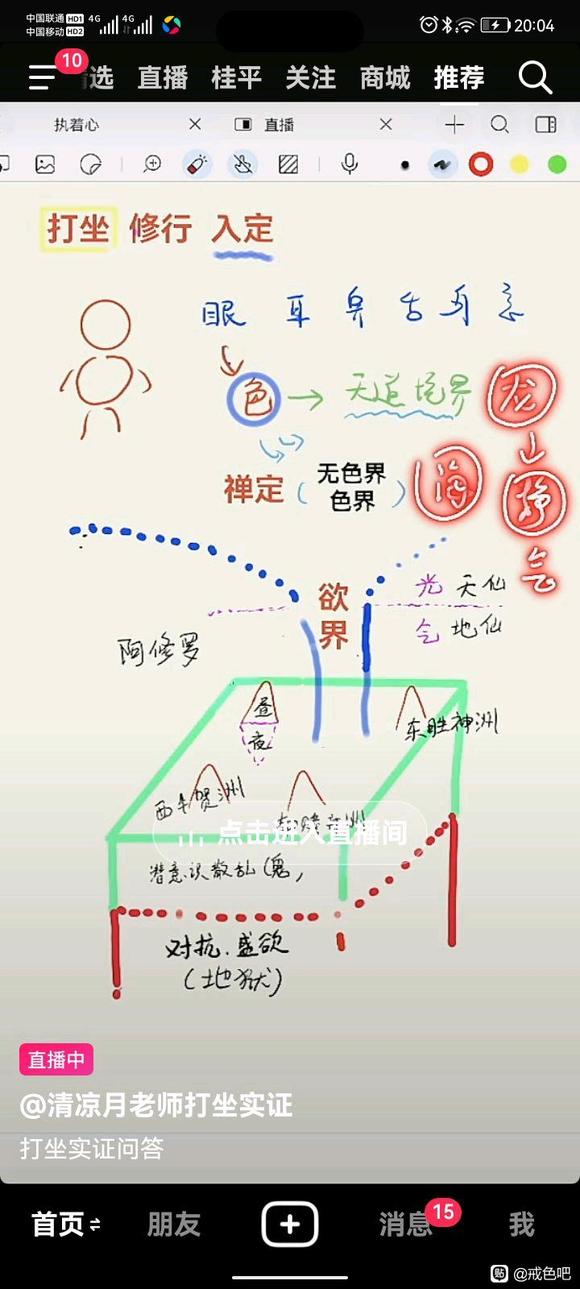 中国联通 HD1 4G 4G
中国移动 HD2
20:04
10
选 直播 桂平 关注 商城 推荐
执着心 直播
打坐 修行 入定
眼 耳 鼻 舌 身 意
色 → 天道境界 龙
禅定（无色界
色界） 海 静
气
欲界
光 天仙
气 地仙
阿修罗
昼
夜
东胜神洲
西牛贺洲
南赡部洲
点击进入直播间
潜意识散乱（鬼，
对抗.盛欲
（地狱）
直播中
@清凉月老师打坐实证
打坐实证问答
首页 朋友 消息 15 我
贴 @戒色吧